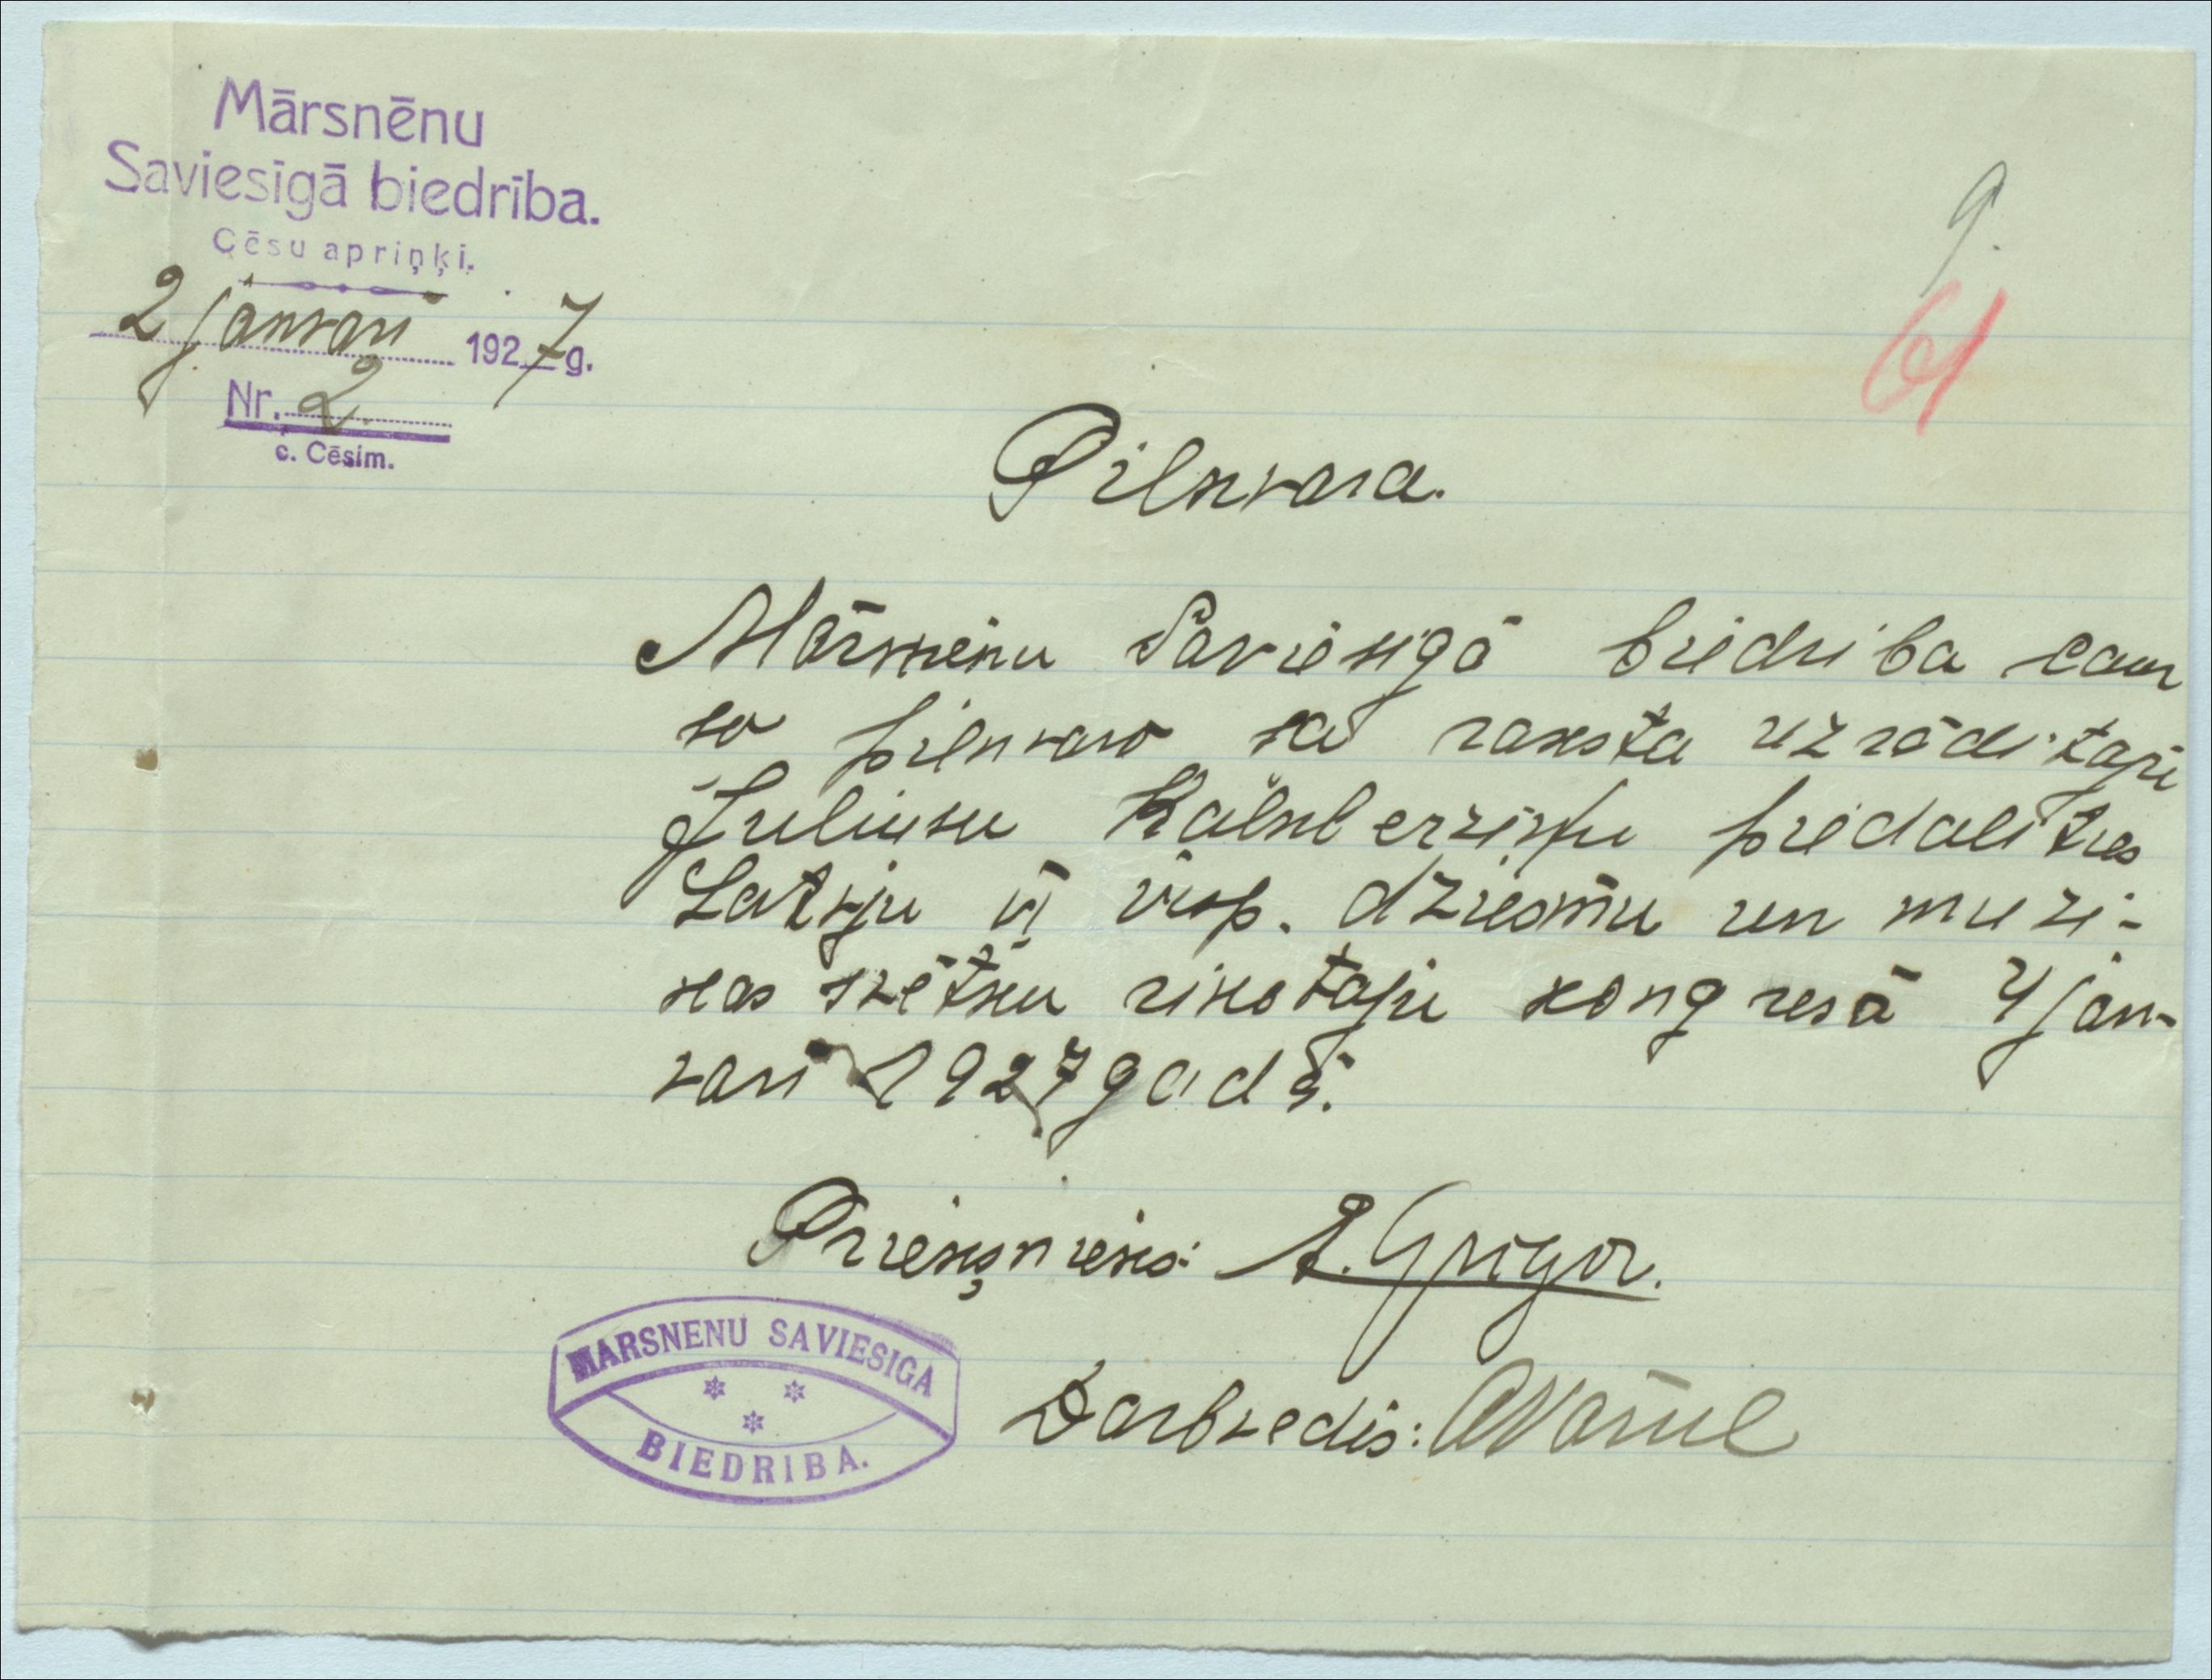 Mārsnēnu
Saviesīgā biedrība.
Cēsu apriņķī.
2 janvarī 1927 g.
Nr. 2.
c. Cēsim.
9.
61
Pilnvara.
Mārsnēnu Saviesīgā biedriba caur
šo pilnvaro šā raksta uzrādītaju
Juliusu Kalnberziņu piedalīties
Latvju VI visp. dziesmu un muzi-
kas svētku rikotaju kongresā 4 jan-
varī 1927 gadā.
Priekšnieks: A. Grigor.
Darbvedis:
MARSNENU SAVIESIGA
BIEDRIBA.